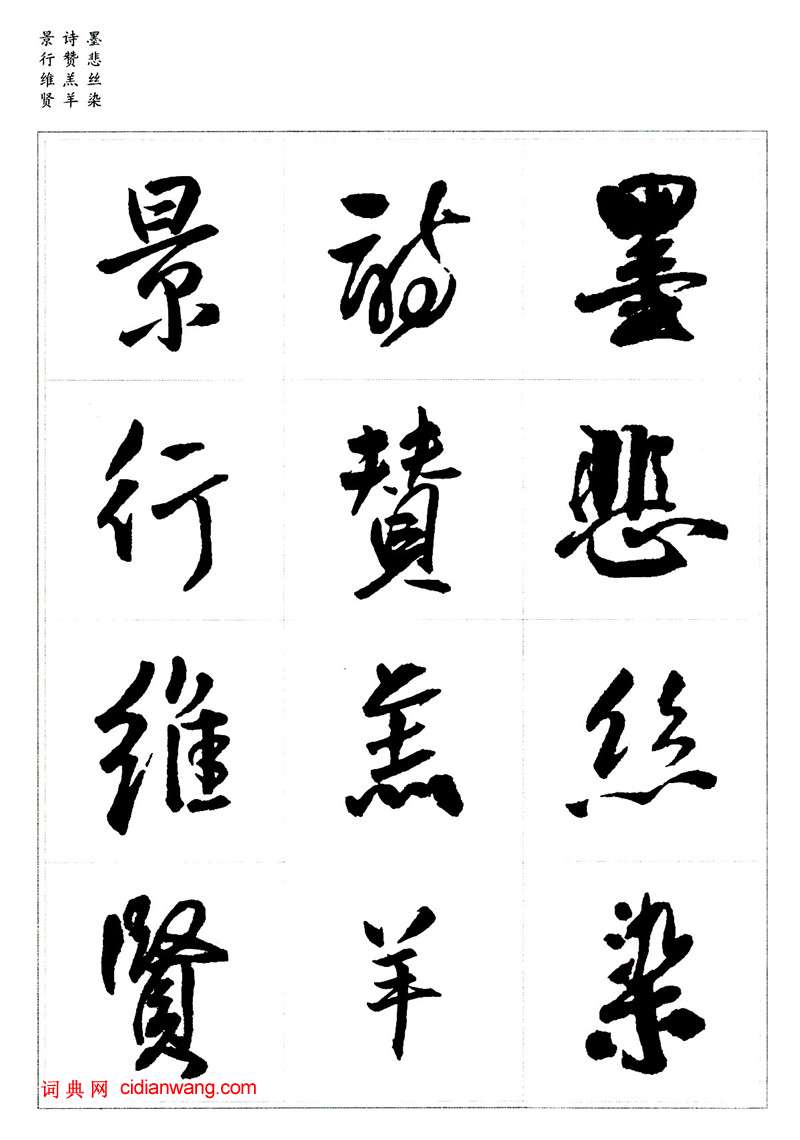 墨悲丝染
诗赞羔羊
景行维贤
墨悲絲染
詩贊羔羊
景行維賢
词典网 cidianwang.com